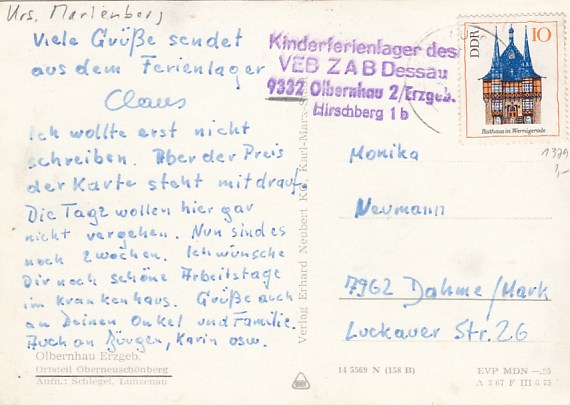 Urs. Marienberg
Viele Grüße sendet
aus dem Ferienlager
Claus
Ich wollte erst nicht
schreiben. Aber der Preis
der Karte steht mit drauf.
Die Tage wollen hier gar
nicht vergehen. Nun sind es
noch 2 Wochen. Ich wünsche
Dir noch schöne Arbeitstage
im Krankenhaus. Grüße auch
an Deinen Onkel und Familie.
Auch an Jürgen, Karin usw.
Olbernhau Erzgeb.
Ortsteil Oberneuschönberg
Aufn.: Schlegel, Lunzenau
Verlag Erhard Neubert KG, Karl-Marx-S
Kinderferienlager des
VEB ZAB Dessau
9332 Olbernhau 2/Erzgeb.
Hirschberg 1b
DDR
10
Rathaus in Wernigerode
1379
1,-
Monika
Neumann
7962 Dahme/Mark
Luckauer Str. 26
14 5569 N (158 B)
EVP MDN —.25
A 2 67 F III 6 73